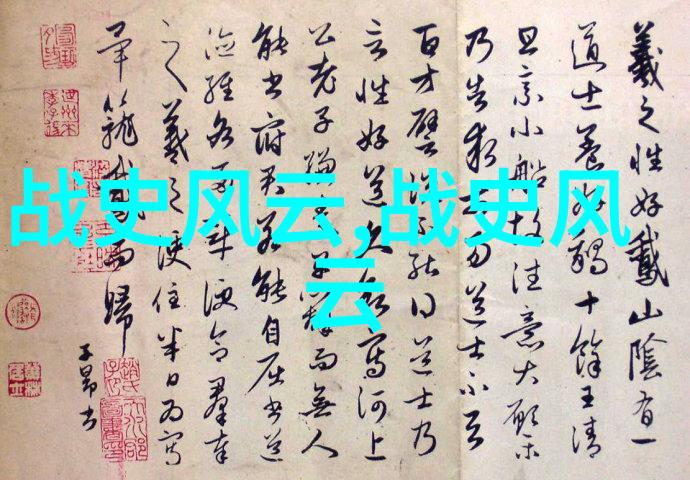 战史风云,战史风
云
羲之性好鵝山陰有一
道士養好鵝十餘王清
旦乘小船故往意大願樂
乃告求市易道士不云
百方譬說不能得道士乃
言性好道久欲寫河上
公老子縑素而無人
能書府君若能自屈書道
德經各兩章便合羣奉
之羲之便住半日為寫
畢籠鵝而歸
子昂書